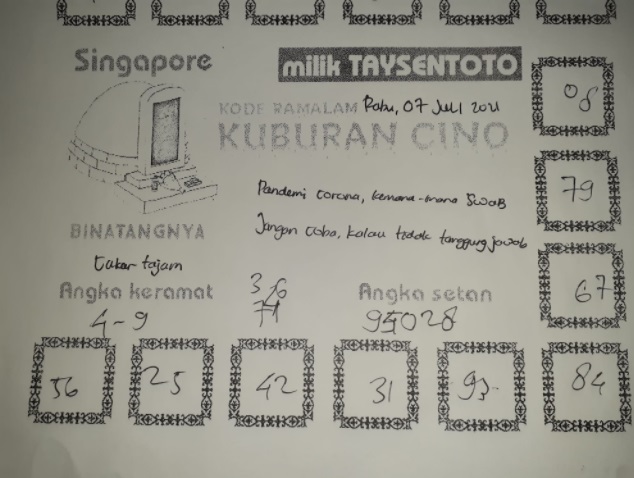 Singapore
milik TAYSENTOTO
KODE RAMALAM Rabu, 07 Juli 2021
KUBURAN CINO
08
79
Pandemi corona, kemana-mana SwaB
Jangan coba, kalau tidak tanggung jawab
BINATANGNYA
Cakar tajam
67
Angka keramat
3/6
71
Angka setan
4-9
94028
56
25
42
31
93
84